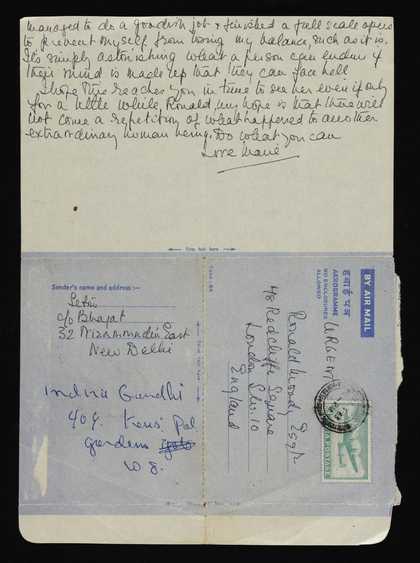 managed to do a goodish job & finished a full scale opera
to prevent myself from losing my balance, such as it is.
It's simply astonishing what a person can endure if
their mind is made up that they can face hell
I hope this reaches you in time to see her even if only
for a little while, Ronald, my hope is that there will
not come a repetition of what happened to another
extraordinary human being. Do what you can
Love
First fold here
Sender's name and address :-
c/o Bhagat
32 Nizamuddin East
New Delhi
Indira Gandhi
409
gardens
W8.
BY AIR MAIL
हवाई पत्र
AEROGRAMME
NO ENCLOSURES
ALLOWED
URGENT
Ronald Moody Esqr
48 Redcliffe Square
London S.W.10
England